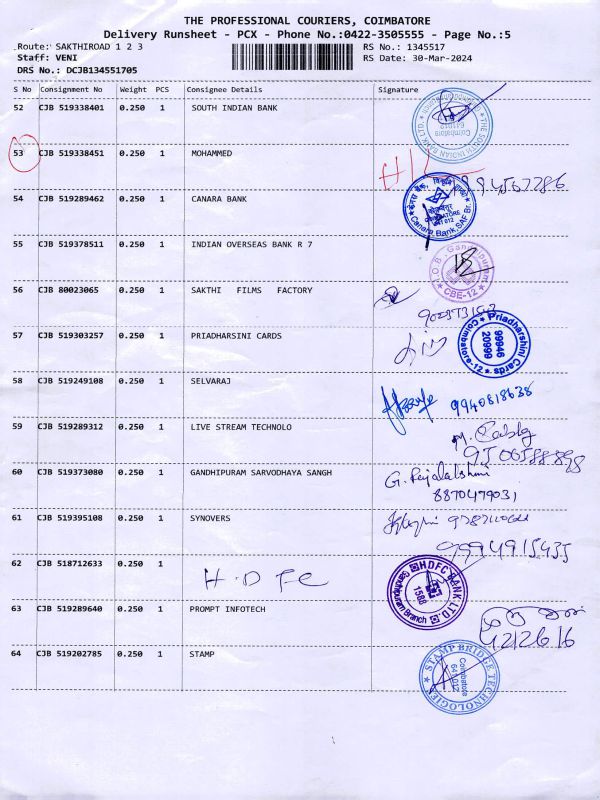 THE PROFESSIONAL COURIERS, COIMBATORE
Delivery Runsheet - PCX - Phone No.:0422-3505555 - Page No.:5
Route: SAKTHIROAD 1 2 3 RS No.: 1345517
Staff: VENI RS Date: 30-Mar-2024
DRS No.: DCJB134551705
S No Consignment No Weight PCS Consignee Details Signature
52 CJB 519338401 0.250 1 SOUTH INDIAN BANK
THE SOUTH INDIAN BANK LTD. Coimbatore
53 CJB 519338451 0.250 1 MOHAMMED
54 CJB 519289462 0.250 1 CANARA BANK
Canara Bank, SAF Br.
55 CJB 519378511 0.250 1 INDIAN OVERSEAS BANK R 7
I.O.B. Gandhipuram CBE-12
56 CJB 80023065 0.250 1 SAKTHI FILMS FACTORY
57 CJB 519303257 0.250 1 PRIADHARSINI CARDS
Priadharshini Cards Coimbatore-12 99946 20999
58 CJB 519249108 0.250 1 SELVARAJ 9940818638
59 CJB 519289312 0.250 1 LIVE STREAM TECHNOLO
60 CJB 519373080 0.250 1 GANDHIPURAM SARVODHAYA SANGH
G. Rajalakshmi
8870479031
61 CJB 519395108 0.250 1 SYNOVERS
9994915435
62 CJB 518712633 0.250 1 H.D FC
HDFC BANK LTD. Gandhipuram Branch 1588
63 CJB 519289640 0.250 1 PROMPT INFOTECH
4212616
64 CJB 519202785 0.250 1 STAMP
STAMP BRIDGE TECHNOLOGIES Coimbatore 641 012